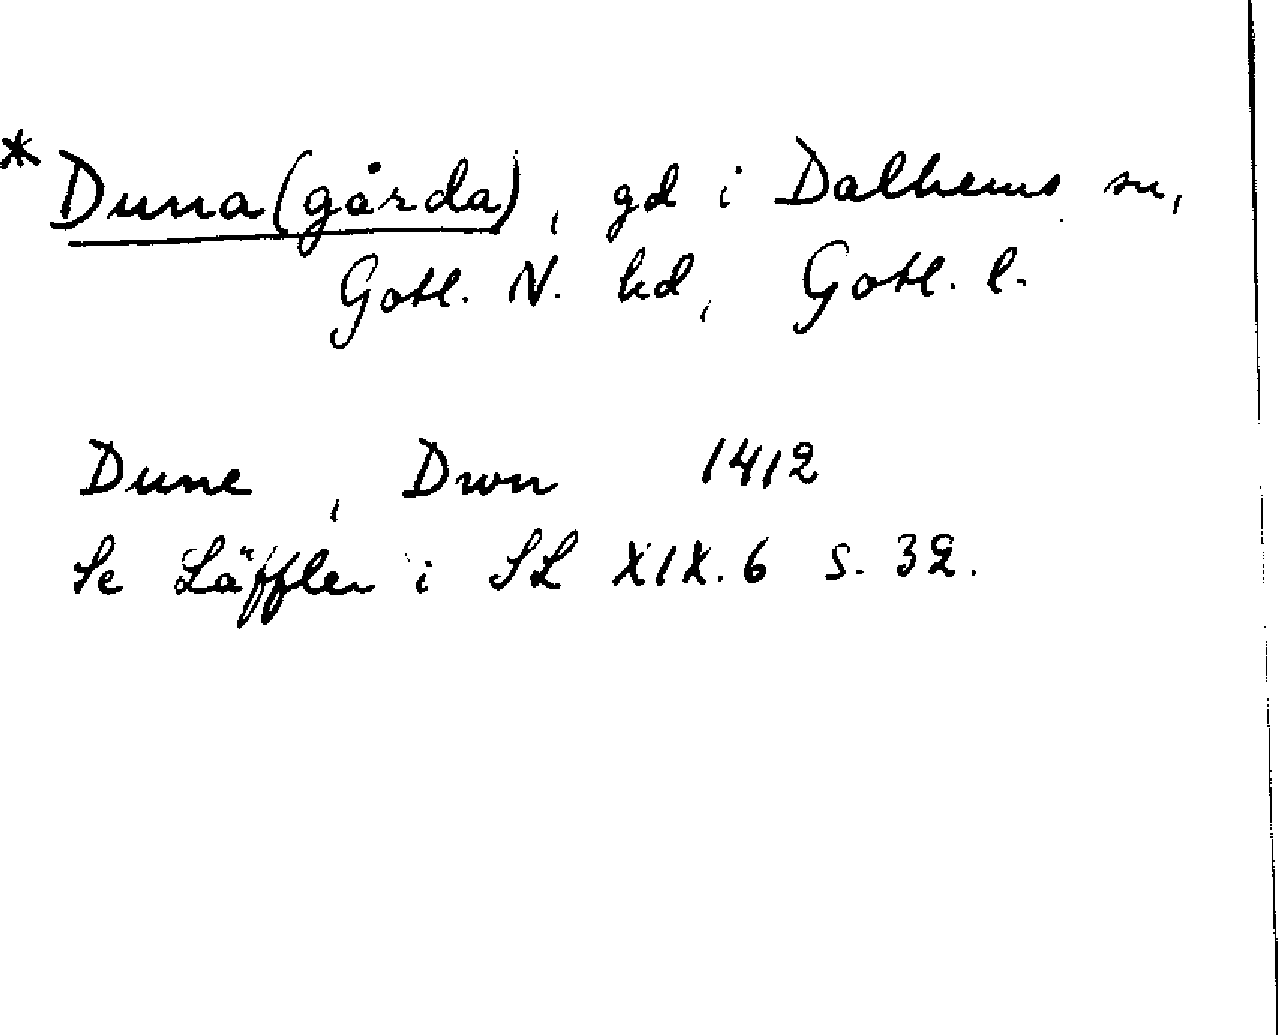 *Duna(gårda), gd i Dalhems sn,
Gotl. N. hd, Gotl. l.
Dune, Dwn 1412
Se Läffler i SL XIX.6 s. 32.